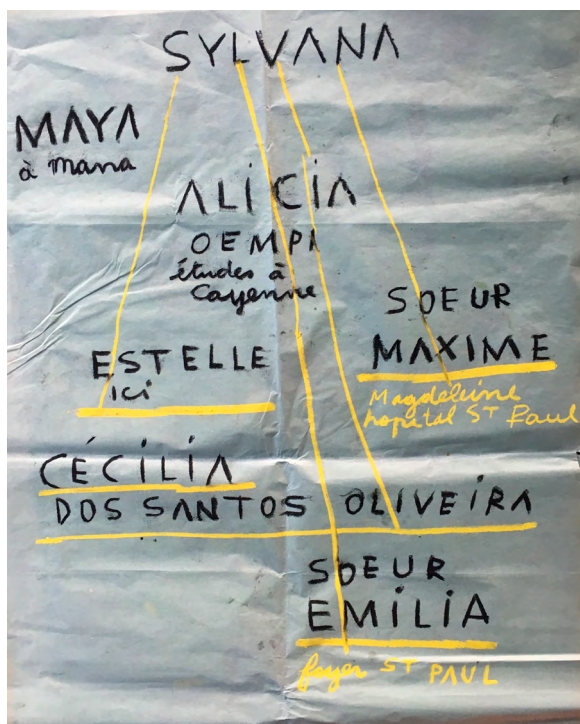 SYLVANA
MAYA
à mana
ALICIA
OEMPI
études à
Cayenne
SOEUR
MAXIME
Magdeleine
hopital ST Paul
ESTELLE
ici
CÉCILIA
DOS SANTOS OLIVEIRA
SOEUR
EMILIA
foyer ST PAUL